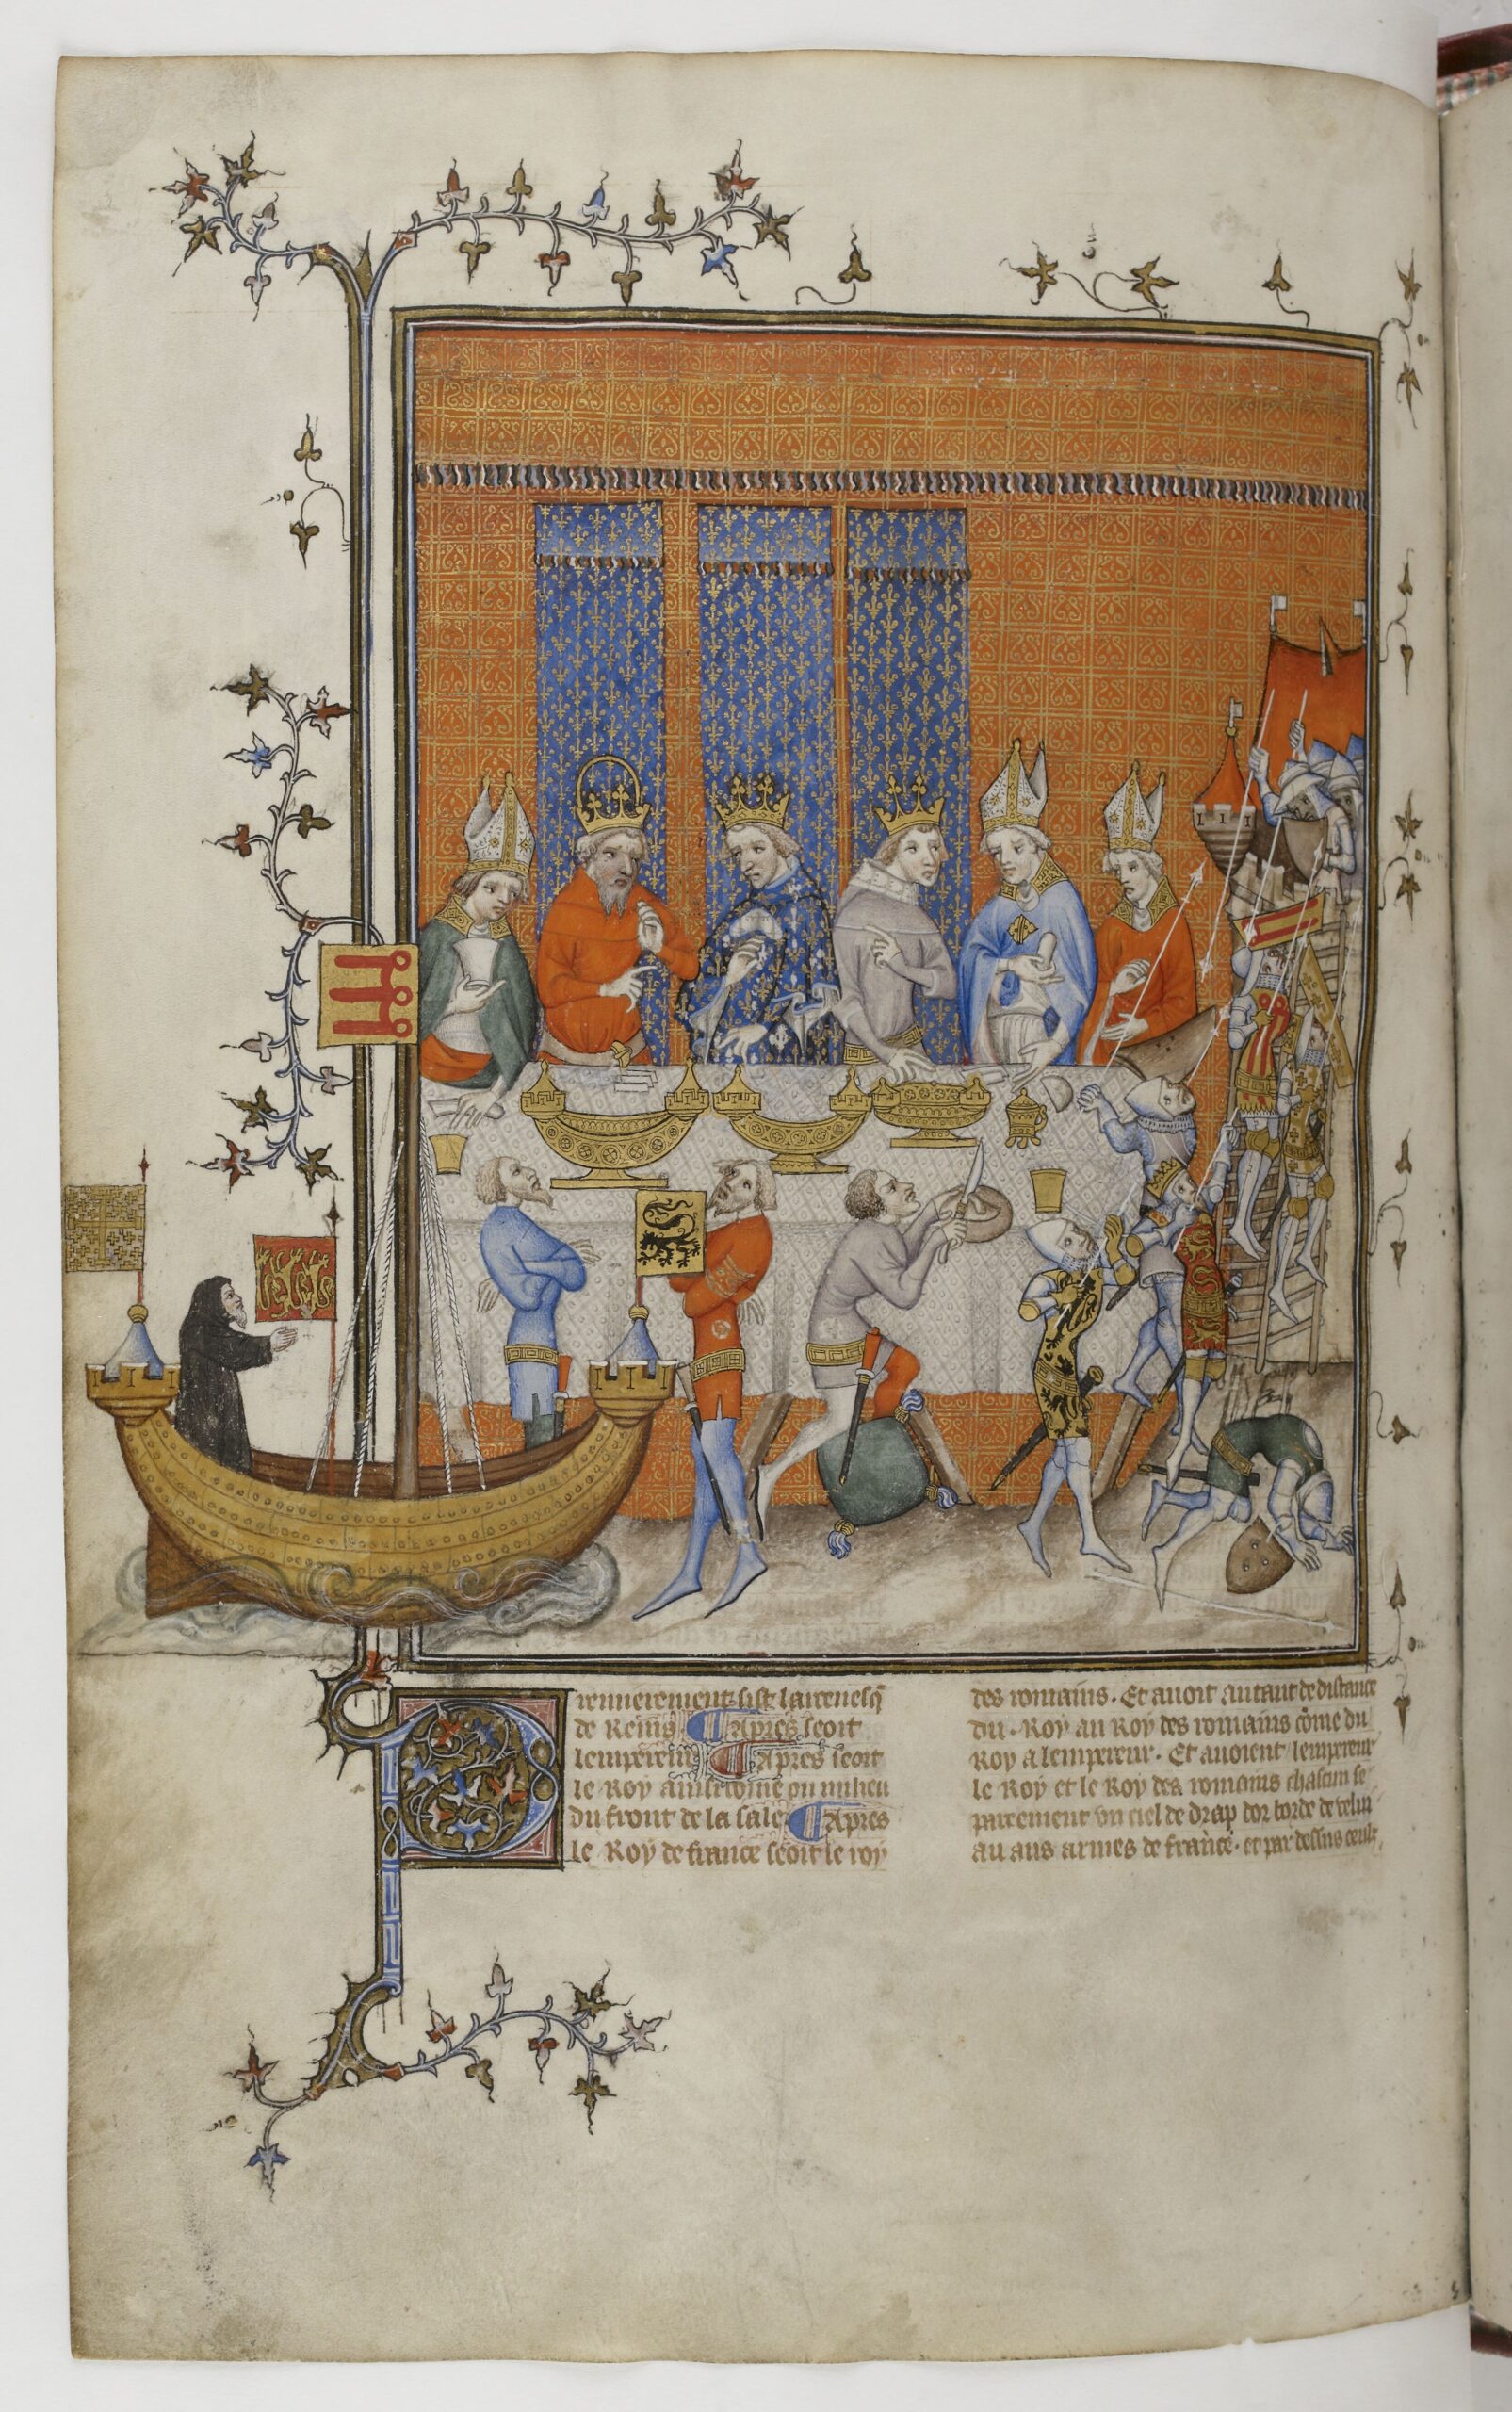 Premierement sist larcevesq̃
de Reins. Apres seoit
lempereur. Apres seoit
le Roy
du front de la sale. Apres
le Roy de france seoit le roy
des romains. Et auoit autant de distance
du Roy au Roy des romains cõme du
Roy a lempereur. Et auoient lempereur
le Roy et le Roy des romains chascun se
parement vn ciel de drap dor borde de velui
au aus armes de france. et par dessus ceulz